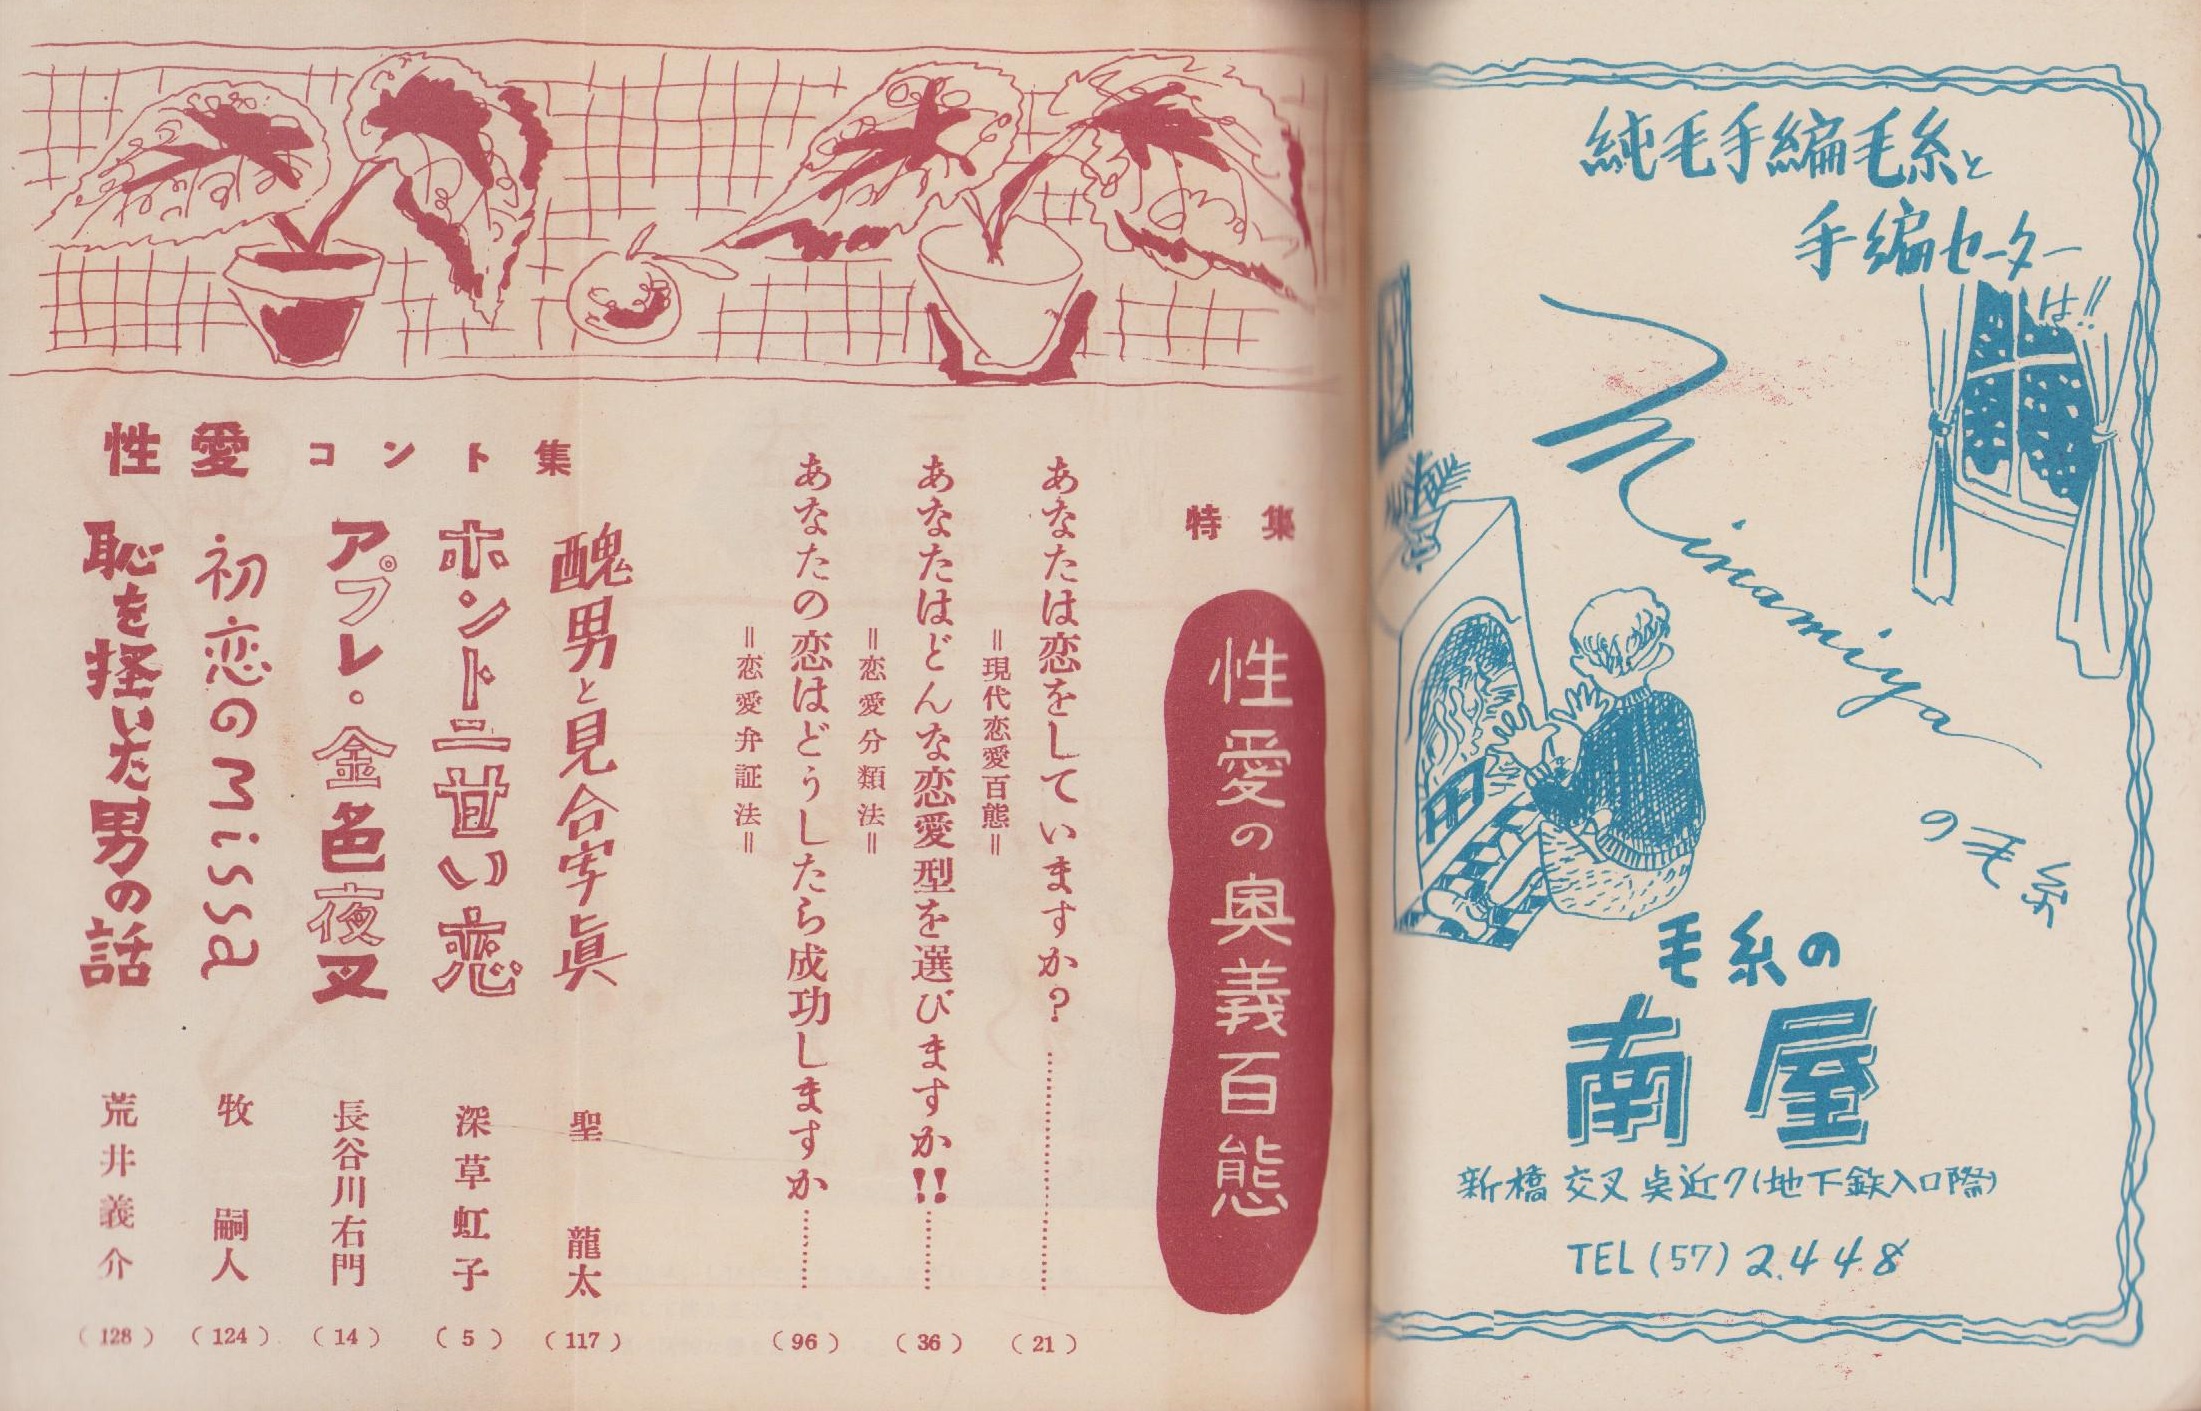 純毛手編毛糸と
手編セーター
は!!
Minamiya
の毛糸
毛糸の
南屋
新橋交叉点近ク(地下鉄入口際)
TEL (57) 2.448
特集
性愛の奥義百態
あなたは恋をしていますか?
=現代恋愛百態=
(21)
あなたはどんな恋愛型を選びますか!!
=恋愛分類法=
(36)
あなたの恋はどうしたら成功しますか
=恋愛弁証法=
(96)
性愛コント集
醜男と見合写眞
聖 龍太
(117)
ホントニ甘い恋
深草虹子
(5)
アプレ。金色夜叉
長谷川右門
(14)
初恋のmissa
牧 嗣人
(124)
恥を掻いた男の話
荒井義介
(128)